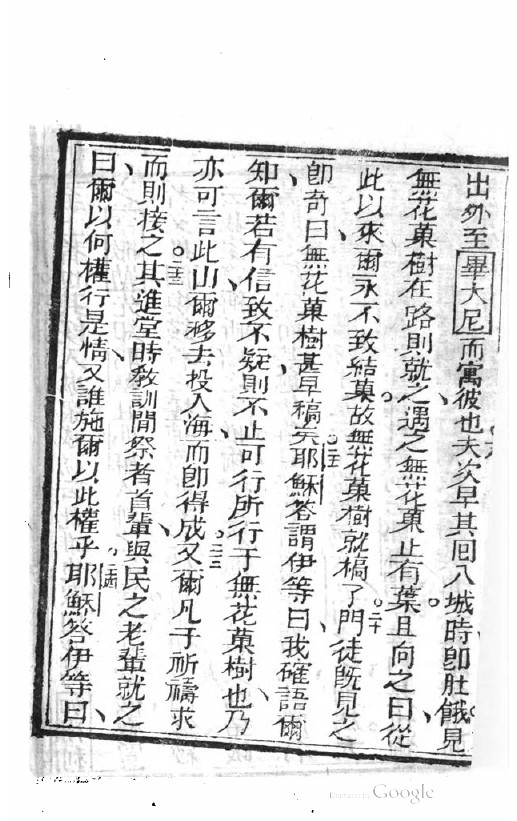 出外至畢大尼而寓彼也夫次早其囘入城時卽肚餓見
無花菓樹在路則就之遇之無花菓止有葉且向之曰從
此以來爾永不致結菓故無花菓樹就槁了二十門徒旣見之
卽奇曰無花菓樹甚早槁矣二一耶穌答謂伊等曰我確語爾
知爾若有信致不疑則不止可行所行于無花菓樹也乃
亦可言此山爾移去投入海而卽得成二二又爾凡于祈禱求
而則接之二三其進堂時敎訓間祭者首輩與民之老輩就之
曰爾以何權行是情又誰施爾以此權乎二四耶穌答伊等曰
Digitized by Google